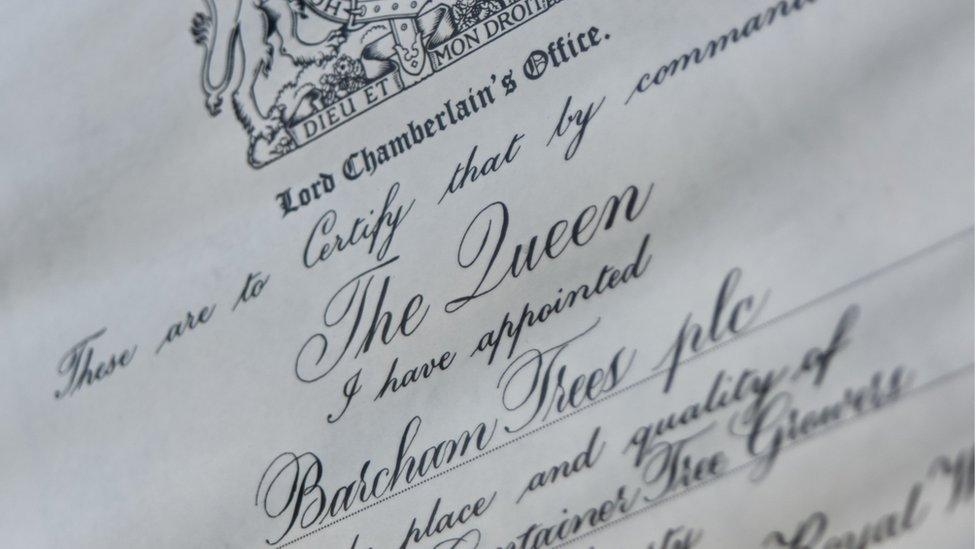 DIEU ET MON DROIT
Lord Chamberlain's Office.
These are to Certify that by command
The Queen
I have appointed
Barcham Trees plc
place and quality of
Container Tree Growers
Royal